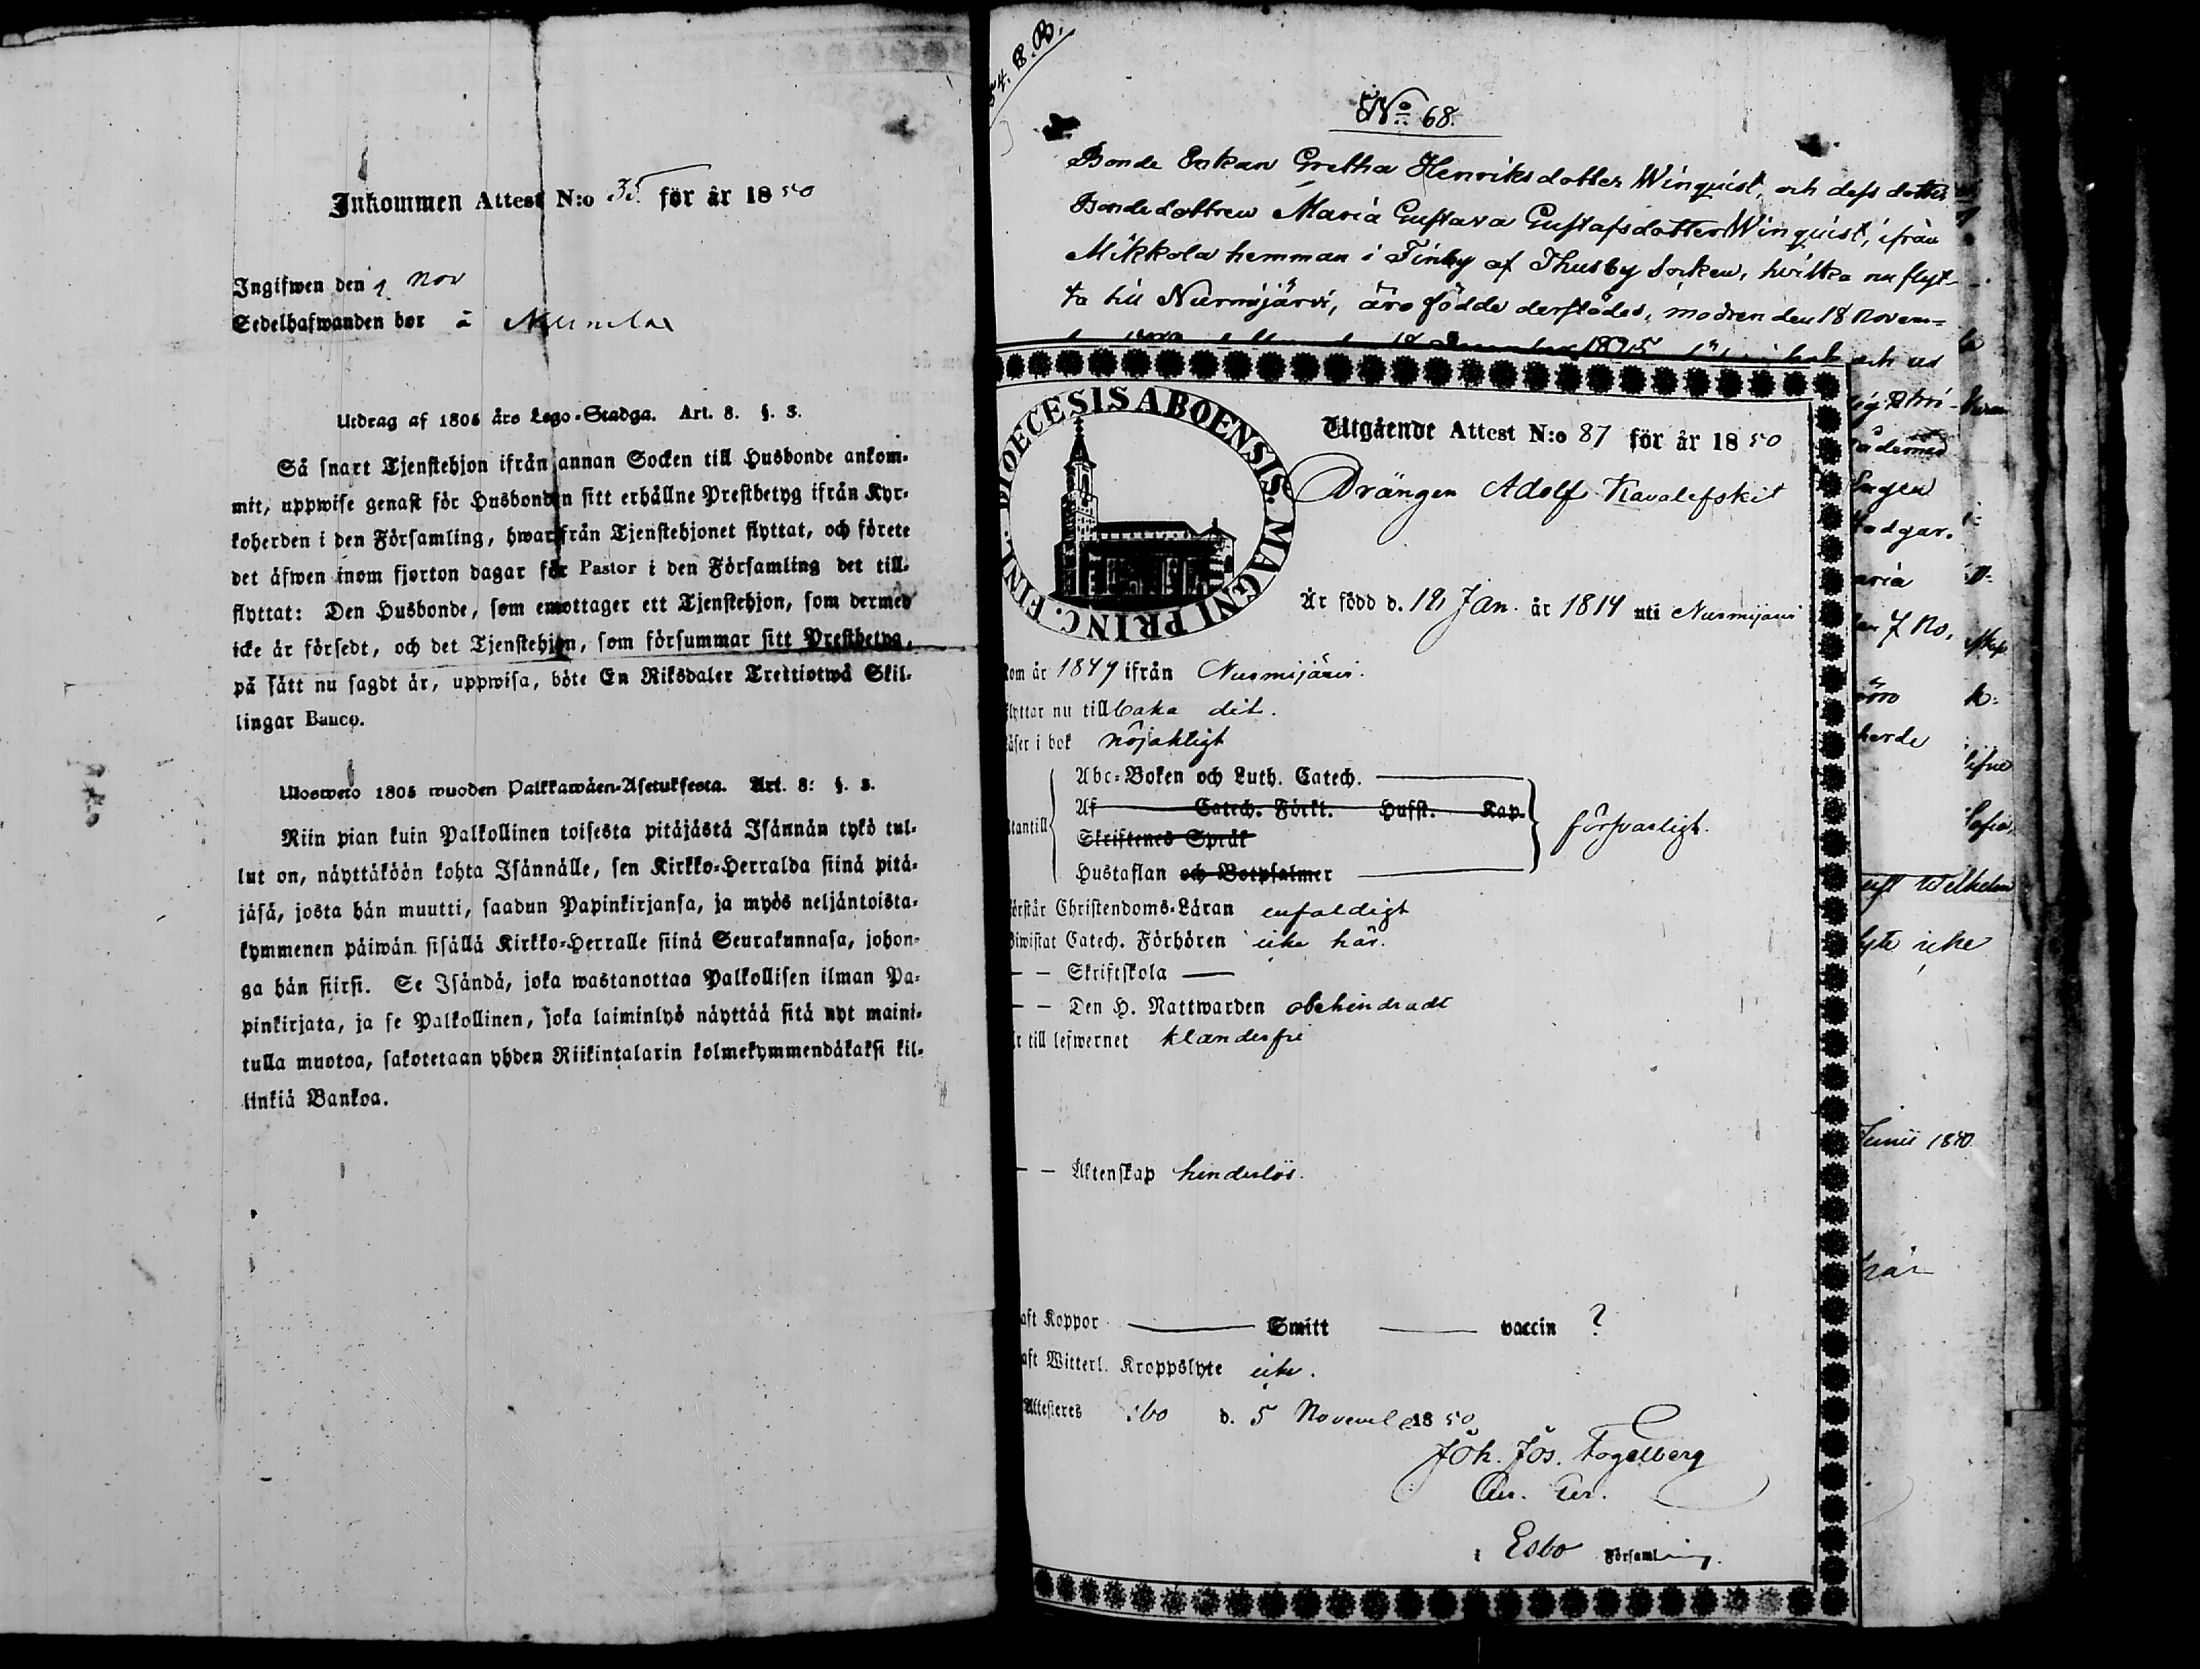 Inkommen Attest N:o 35 för år 1850
Ingifwen den 9 Nov
Sedelhafwanden bor å
Utdrag af 1805 års Lego-Stadga. Art. 8. §. 3.
Så snart Tjenstehjon ifrån annan Socken till Husbonde ankom-
mit, uppwise genast för Husbonden sitt erhållne Prestbetyg ifrån Kyr-
koherden i den Församling, hwarifrån Tjenstehjonet flyttat, och förete
det äfwen inom fjorton dagar för Pastor i den Församling det till-
flyttat: Den Husbonde, som emottager ett Tjenstehjon, som dermed
icke är försedt, och det Tjenstehjon, som försummar sitt Prestbetyg,
på sätt nu sagdt är, uppwisa, böte En Riksdaler Trettiotwå Skil-
lingar Banco.
Ulosweto 1805 wuoden Palkkawäen-Asetuksesta. Art. 8: §. 3.
Niin pian kuin Palkollinen toisesta pitäjästä Isännän tykö tul-
lut on, näyttäköön kohta Isännälle, sen Kirkko-Herralda siinä pitä-
jäsä, josta hän muutti, saadun Papinkirjansa, ja myös neljäntoista-
kymmenen päiwän sisällä Kirkko-Herralle siinä Seurakunnasa, johon-
ga hän siirsi. Se Isändä, joka wastanottaa Palkollisen ilman Pa-
pinkirjata, ja se Palkollinen, joka laiminlyö näyttää sitä nyt maini-
tulla muotoa, sakotetaan yhden Riikintalarin kolmekymmendäkaksi kil-
linkiä Bankoa.
54. B.B.
No 68.
Bonde Enkan Gretha Henriksdotter Winquist, och dess dotter
Bondedottren Maria Gustava Gustafsdotter Winquist, ifrån
Mikkola hemman i Finby af Thusby Socken, hvilka nu flyt-
ta till Nurmijärvi, äro födde derstädes, modren den 18 Novem-
1825 och
DIOECESIS ABOENSIS. MAGNI PRINC. FINL.
Utgående Attest N:o 87 för år 1850
Drängen Adolf Kavalefskit
Är född d. 19 Jan. år 1814 uti Nurmijärvi
kom år 1849 ifrån Nurmijärvi.
flyttar nu tillbaka dit.
läser i bok nöjaktigt
Abc-Boken och Luth. Catech.
Af Catech. Förkl. Husst. Kap.
utantill Skriftenes Språk försvarligt.
Hustaflan och Botpsalmer
förstår Christendoms-Läran enfaldigt
Biwistat Catech. Förhören icke här.
— — Skriftskola —
— — Den H. Nattwarden obehindradt
är till lefwernet klanderfri
— — Äktenskap hinderlös.
haft Koppor — Smitt — vaccin ?
haft Witterl. Kroppslyte icke.
Attesteres Esbo d. 5 November 1850
Joh. Jos. Fogelberg
i Esbo Församling.
Junii 1840
Wilhelm
lyte icke
här